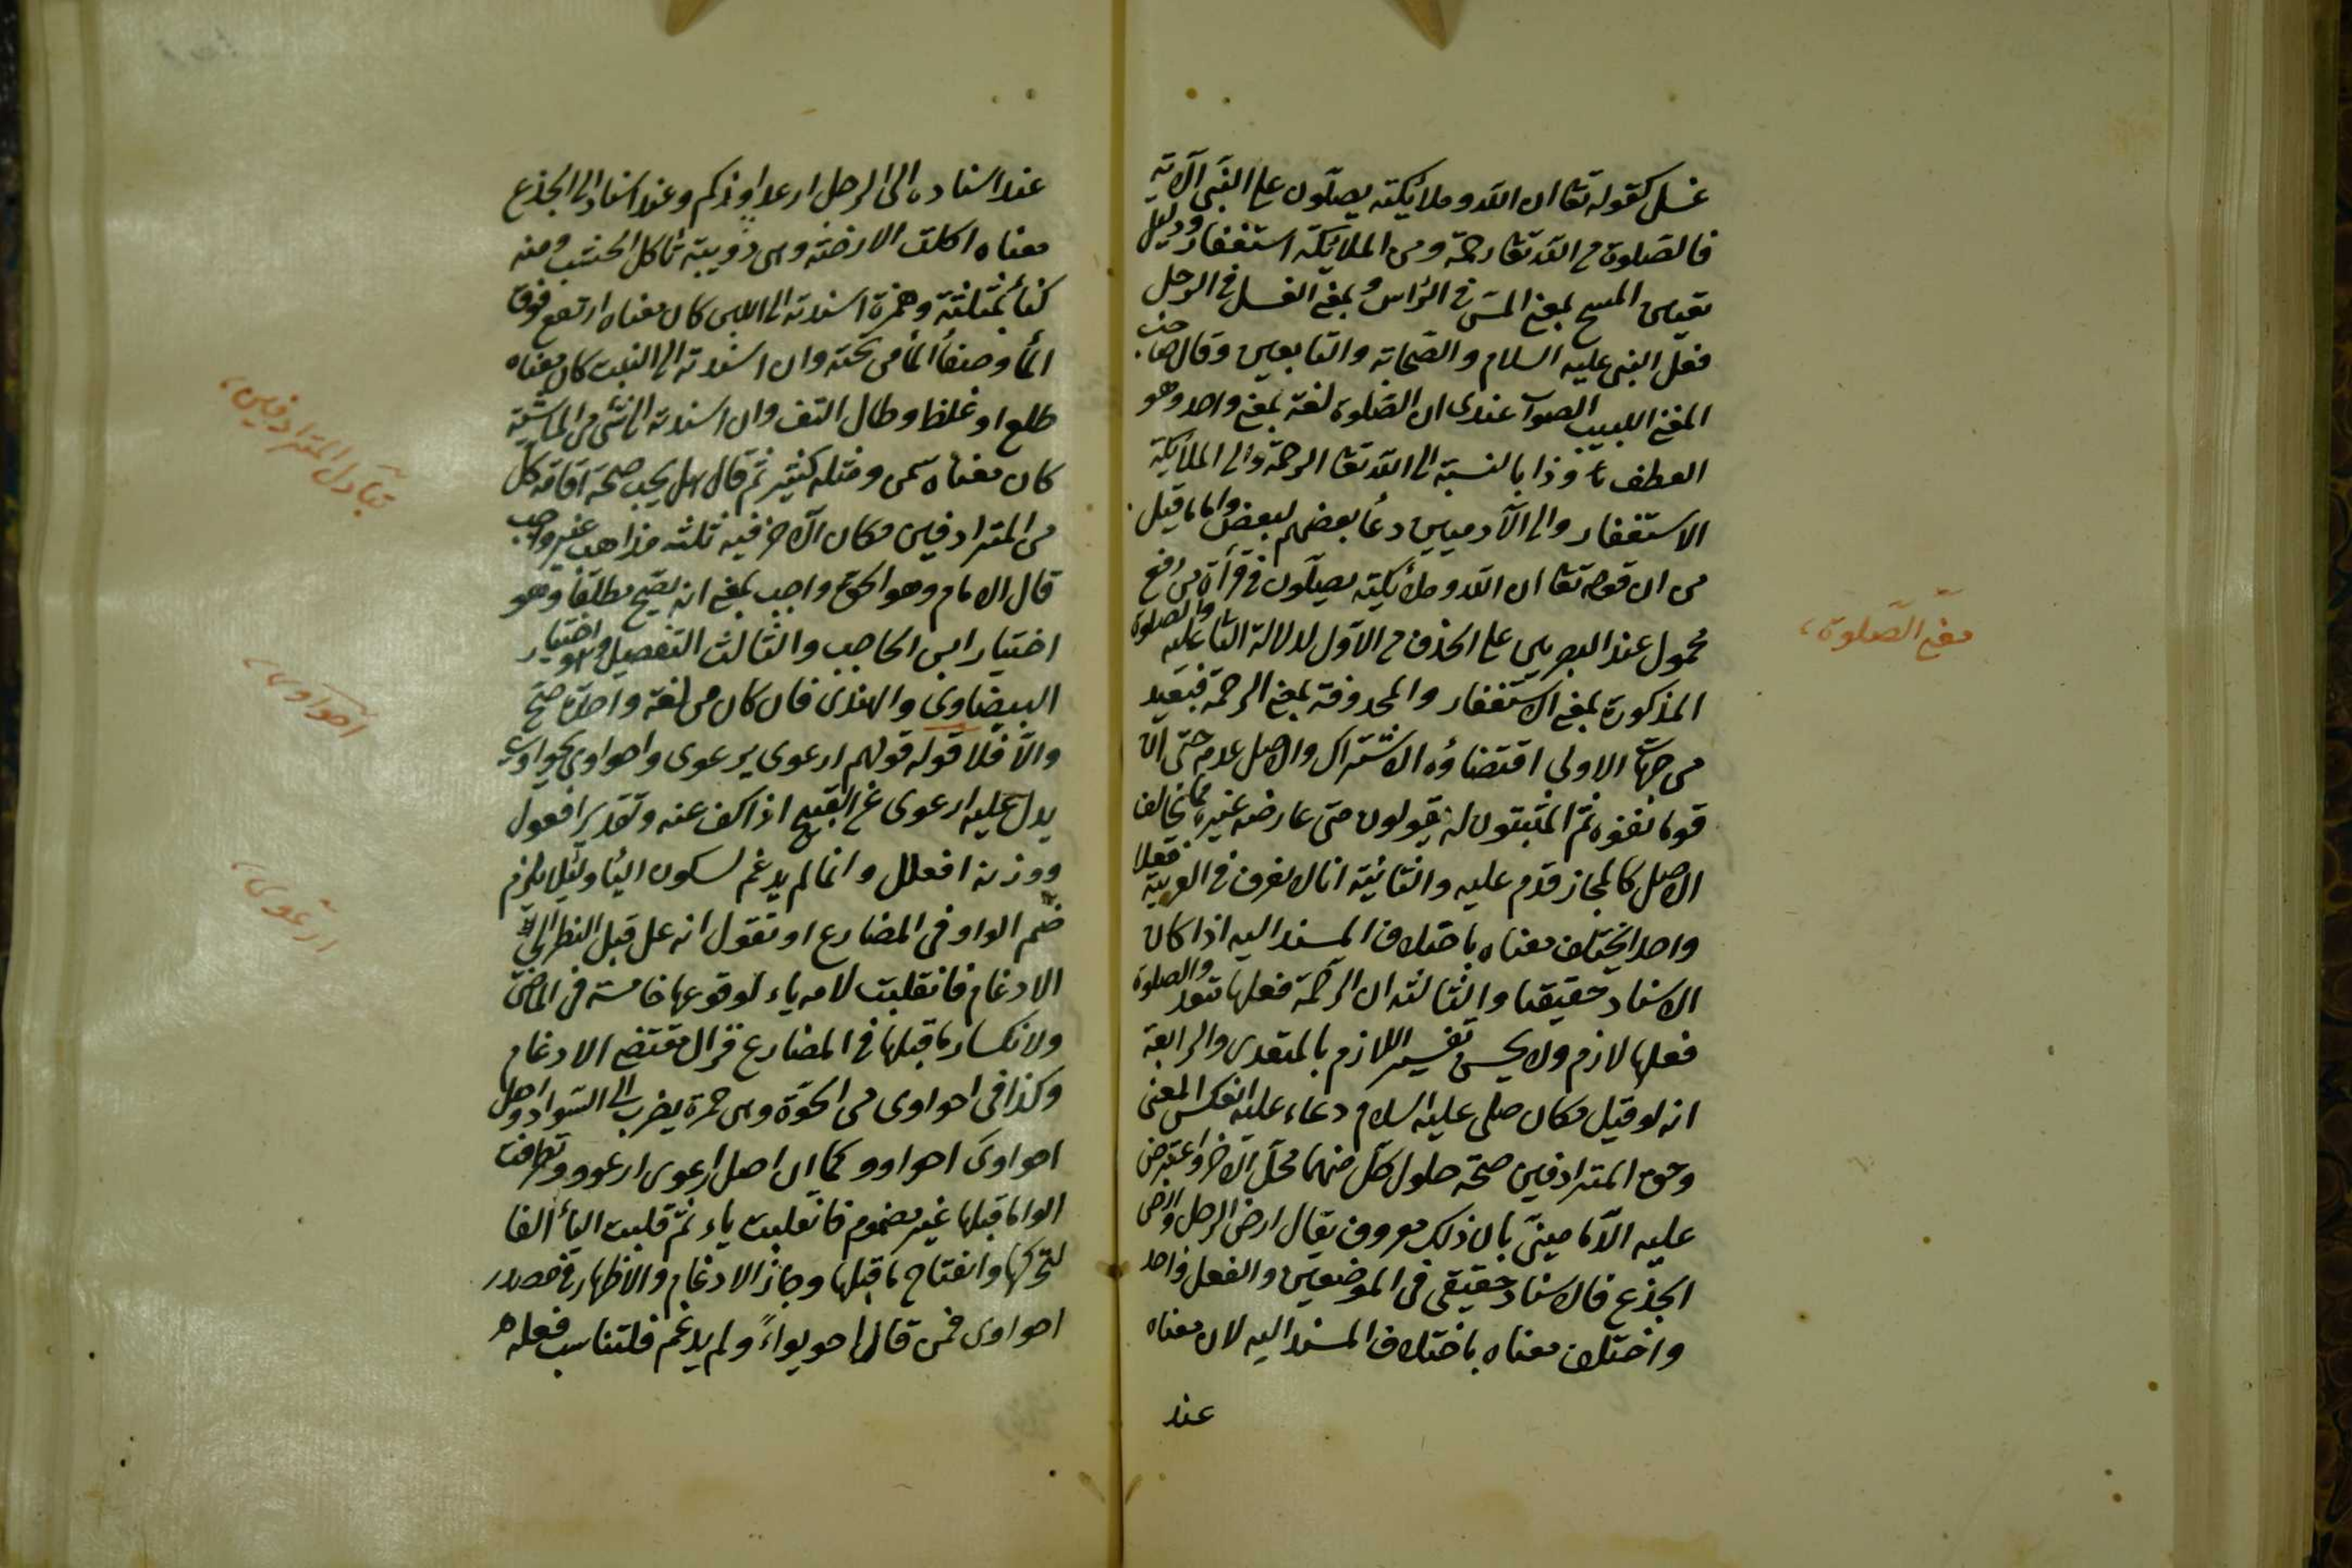 غسل كقوله تعا ان الله وملائكته يصلون على النبى الآية
فالصلوة من الله تعا رحمة ومن الملائكة استغفار ودليل
تعيين المسح بمعنى المس فى الراس وبمعنى الغسل فى الرجل
فعل النبى عليه السلام والصحابة والتابعين وقال صاحب
المغنى اللبيب الصواب عندى ان الصلوة لغة بمعنى واحد وهو
العطف وذا بالنسبة الى الله تعا الرحمة والى الملائكة
الاستغفار والى الآدميين دعا بعضهم لبعض واما ما قيل
من ان قوله تعا ان الله وملائكته يصلون فى قراة من رفع
محمول عند البصريين على الحذف من الاول لدلالة الثا عليه والصلوة
المذكورة بمعنى الاستغفار والمحذوفة بمعنى الرحمة فبعيد
من جهات الاولى اقتضاؤه الاشتراك والاصل عدمه حتى ان
قوما نفوه ثم المثبتون له يقولون متى عارضه غيره مما يخالف
الاصل كالمجاز قدم عليه والثانية انا لا نعرف فى العربية فعلا
واحدا يختلف معناه باختلاف المسند اليه اذا كان
الاسناد حقيقيا والثالثة ان الرحمة فعلها متعد والصلوة
فعلها لازم ولا يحسن تفسير اللازم بالمتعدى والرابعة
انه لو قيل مكان صلى عليه السلام دعاء عليه انعكس المعنى
وحق المترادفين صحة حلول كل منهما محل الاخر واعترض
عليه الدمامينى بان ذلك معروف يقال ارض الرجل وارض
الجذع فالاسناد حقيقى فى الموضعين والفعل واحد
واختلف معناه باختلاف المسند اليه لان معناه
عند
معنى الصلوة
عند اسناده الى الرجل ارعد او زكم وعند اسناد الى الجذع
معناه اكلت الارضة وهى دويبة تاكل الخشب ومنه
كثا بمثلثة وهمزة اسندته الى اللبن كان معناه ارتفع فوق
الما وصفا الما من تحته وان اسندته الى النبت كان معناه
طلع او غلظ وطال التف وان اسندته الى شى من الماشية
كان معناه سمن ومثله كثير ثم قال هل يجب صحة اقامة كل
من المترادفين مكان الآخر فيه ثلثة مذاهب غير واجب
قال الامام وهو الحق واجب بمعنى انه يصح مطلقا وهو
اختيار ابن الحاجب والثالث التفصيل وهو اختيار
البيضاوى والهندى فان كان من لغة واحدة صح
والا فلا قوله قولهم ارعوى يرعوى واحواوى يحواوى
يدل عليه ارعوى عن القبيح اذا كف عنه وتقدير افعول
ووزنه افعلل وانما لم يدغم لسكون اليا ولئلا يلزم
ضم الواو فى المضارع او نقول انه عل قبل النظر الى
الادغام فانقلبت لامه ياء لوقوعها خامسة فى الماضى
ولانكسار ما قبلها فى المضارع فزال مقتضى الادغام
وكذا فى احواوى من الحوة وهى حمرة يضرب الى السواد واصل
احواوى احواوو كما ان اصل ارعوى ارعوو وتطرفت
الواو ما قبلها غير مضموم فانقلبت ياء ثم قلبت اليا الفا
لتحركها وانفتاح ما قبلها وجاز الادغام والاظهار فى مصدر
احواوى فمن قال احويواء ولم يدغم فلتناسب فعله
تبادل المترادفين
احواوى
ارعوى